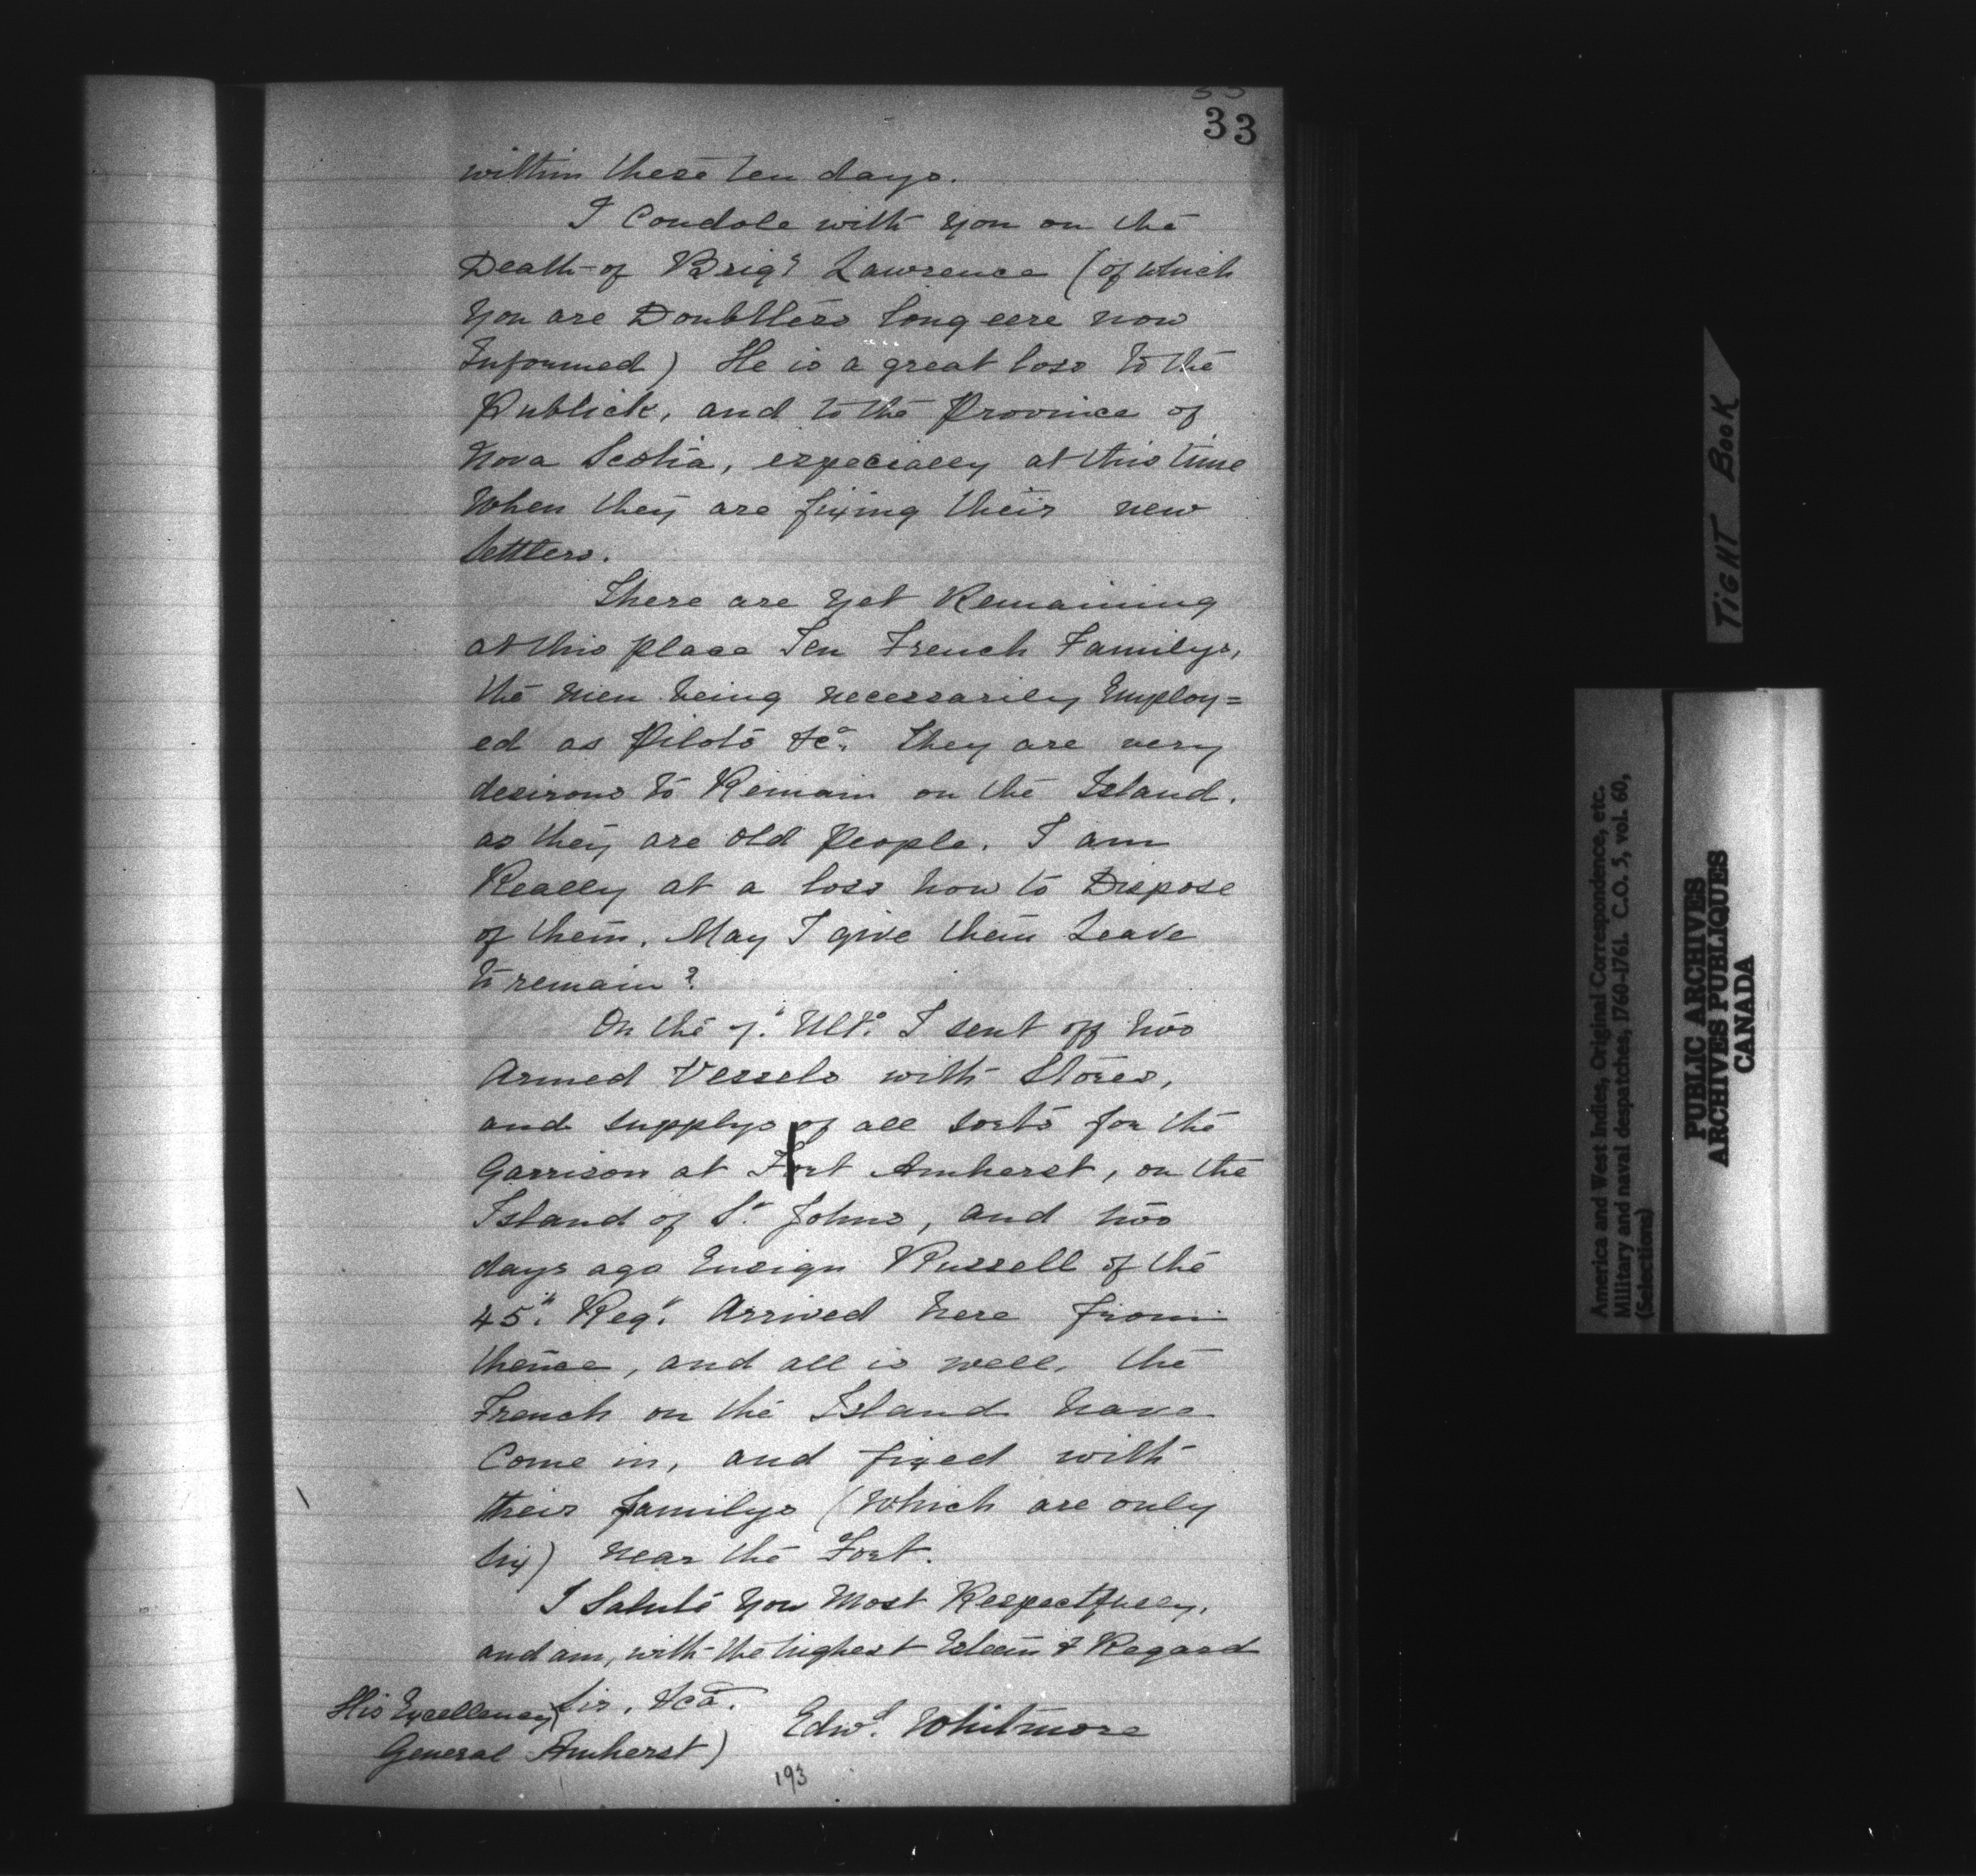 33
within these ten days.
I Condole with you on the
Death of Brigr Lawrence (of which
You are Doubtless long eere now
Informed) He is a great loss to the
Publick, and to the Province of
Nova Scotia, especially at this time
When they are fixing their new
Settlers.
There are yet Remaining
at this place Ten French Familys,
the men being necessarily Employ=
ed as Pilots &ca. They are very
desirous to Remain on the Island.
as they are old People. I am
Really at a loss how to Dispose
of them. May I give them Leave
to remain?
On the 7th Ulto. I sent off two
Armed Vessels with Stores,
and supplys of all sorts for the
Garrison at Fort Amherst, on the
Island of St. Johns, and two
days ago Ensign Russell of the
45th Regt. Arrived here from
thence, and all is well, the
French on the Island have
Come in, and fixed with
their familys (Which are only
six) near the Fort.
I Salute You Most Respectfully,
and am, with the highest Esteem & Regard
Sir, &ca.
His Excellency
General Amherst)
Edwd. Whitmore
193
TIGHT BOOK
America and West Indies, Original Correspondence, etc.
Military and naval despatches, 1760-1761. C.O. 5, vol. 60,
(Selections)
PUBLIC ARCHIVES
ARCHIVES PUBLIQUES
CANADA